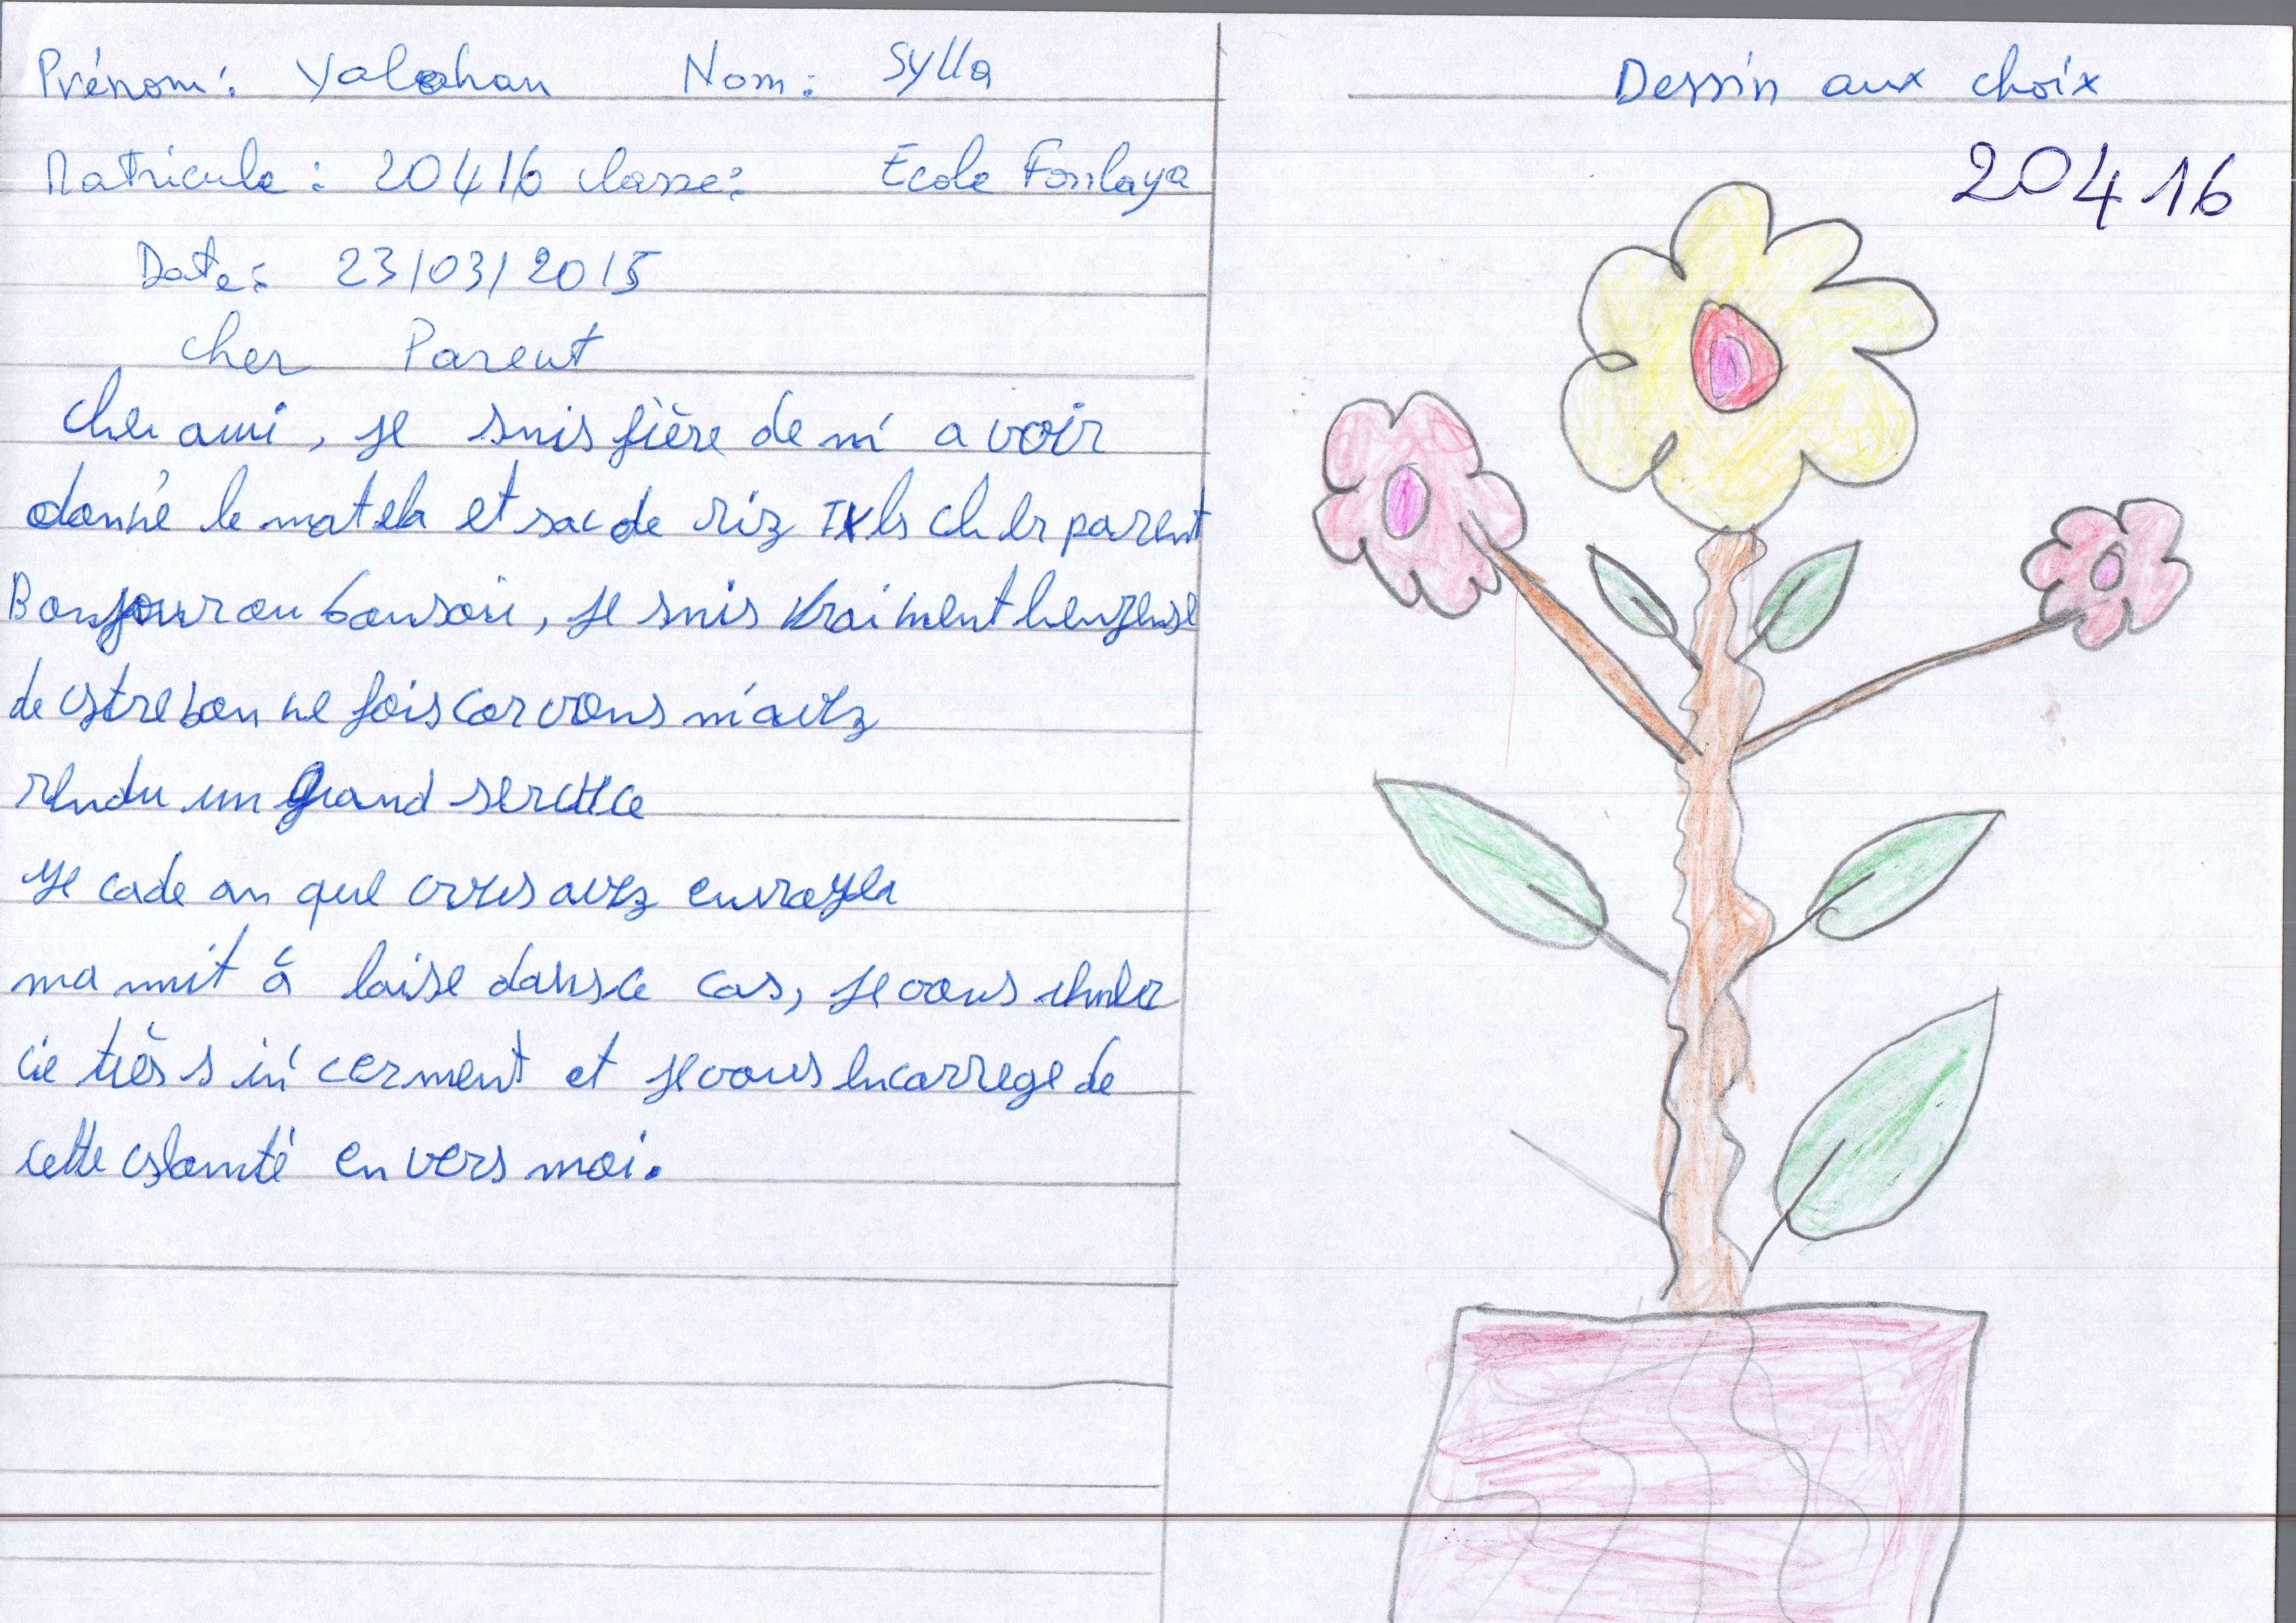 Prénom: Yalahan Nom: Sylla
Matricule: 20416 classe: Ecole Fonlaya
Date: 23/03/2015
cher Parent
Cher ami, je suis fière de m'avoir
donné le matela et sac de riz cher parent
Bonjour ou bonsoir, je suis vraiment
de fois car vous m'avez
rendu un grand service
je cade an que vous avez envoyer
ma nuit à laise dans ce cas, je vous remer
cie très sin'cerment et je vous encarrege de
cette envers moi.
Dessin aux choix
20416